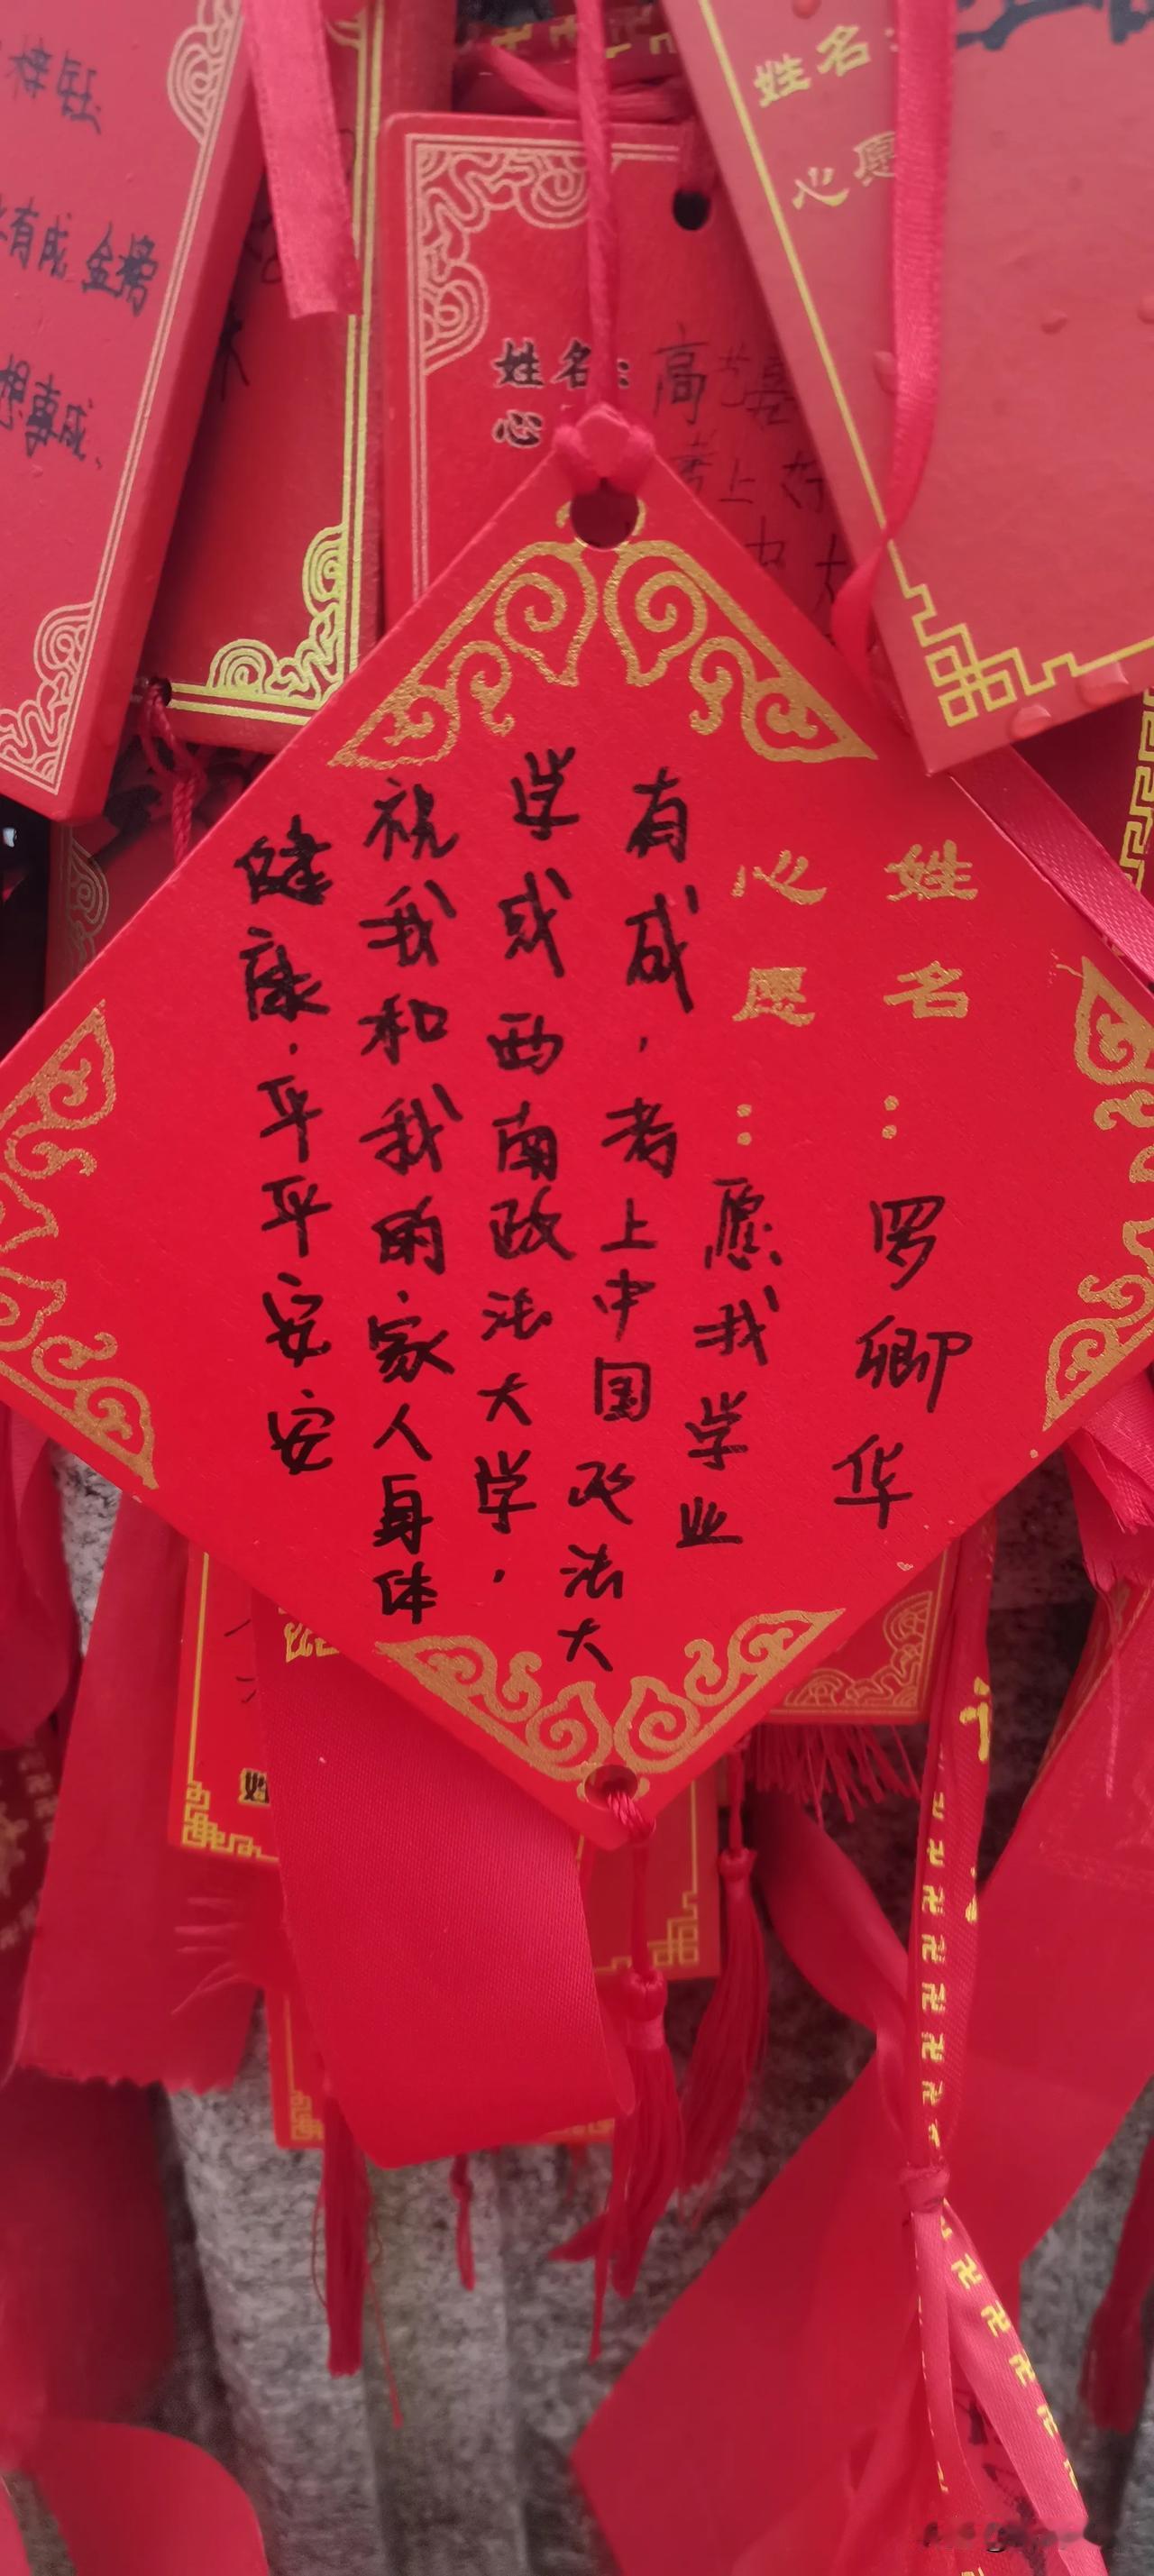 姓名：罗卿华
心愿：愿我学业
有成，考上中国政法大
学或西南政法大学，
祝我和我的家人身体
健康.平平安安
姓名：高艺嘉
心
考上
姓名：
心愿
梓钰
有成 金榜
想事成